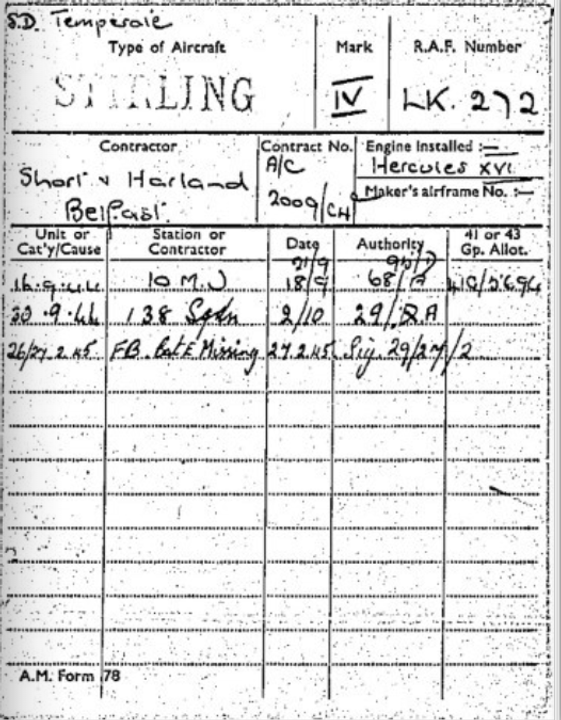 S.D. Temperate
Type of Aircraft Mark R.A.F. Number
STIRLING IV LK. 272
Contractor Contract No. Engine Installed :—
Short & Harland A/C Hercules XVI
Belfast. 2009/CH Maker's airframe No. :—
Unit or Station or Date Authority 41 or 43
Cat'y/Cause Contractor Gp. Allot.
21/9
16.9.44 10 M.U 18/9 68/A 41G/
30.9.44 138 Sqdn 2/10 29/
26/27.2.45 FB. Cat E Missing 27.2.45 Sig. 29/27/2
A.M. Form 78